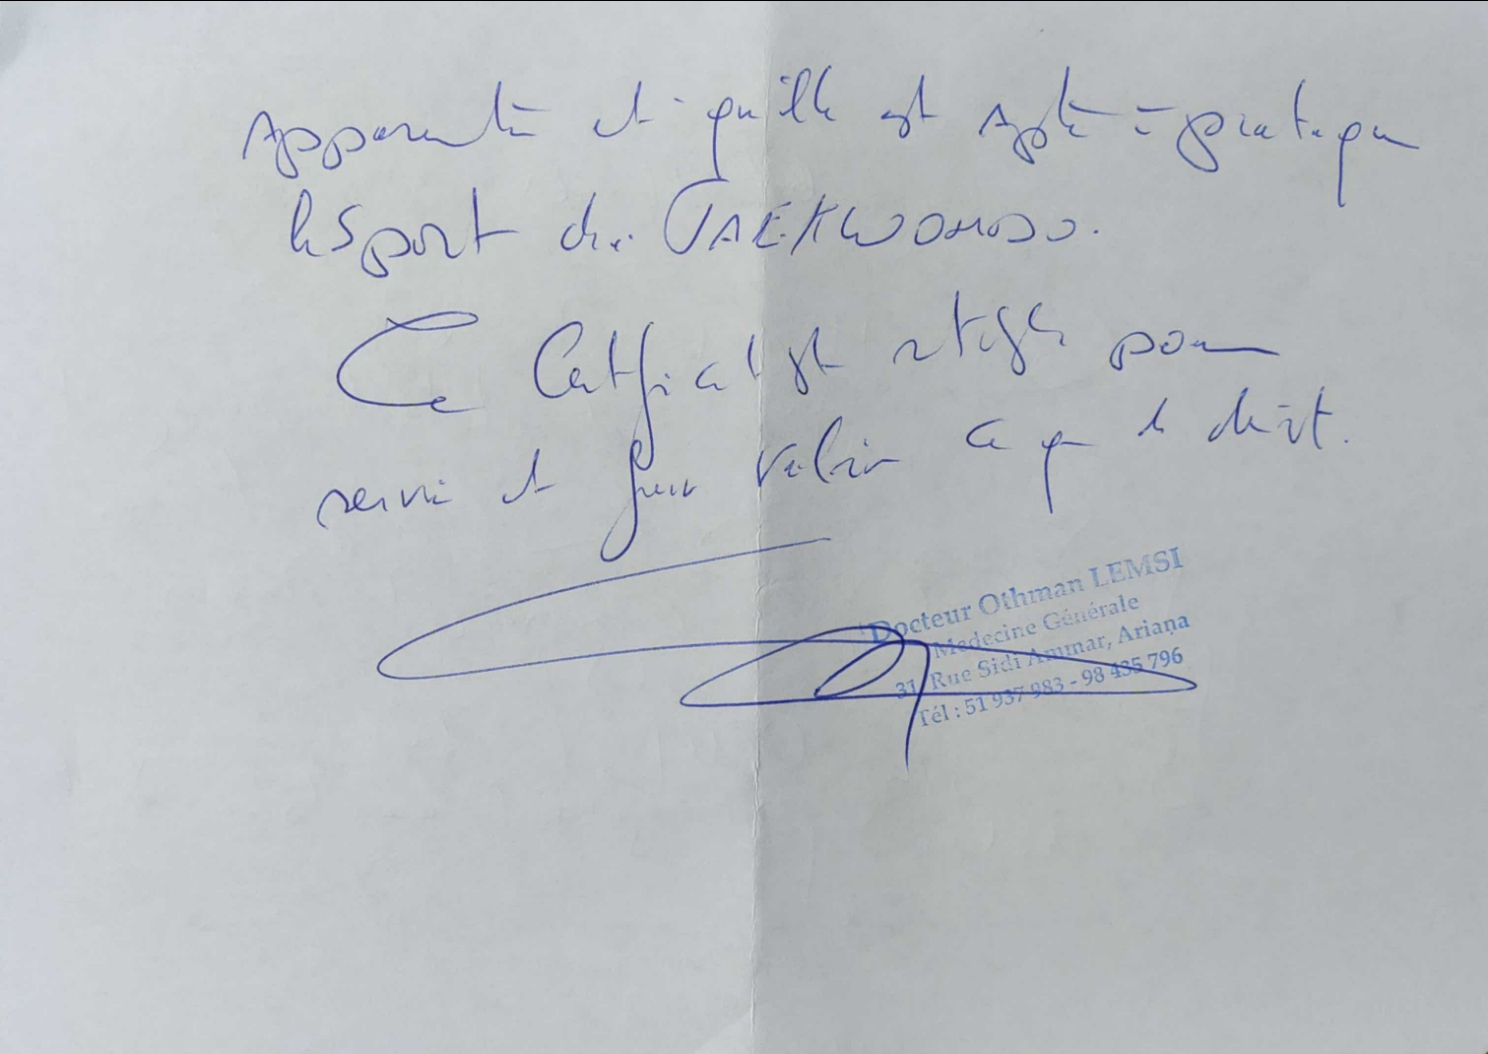 apparente et qu'elle est apte à pratiquer
le sport du TAEKWONDO.
Ce Certificat est rédigé pour
servir et faire valoir ce que de droit.
Docteur Othman LEMSI
Medecine Générale
31, Rue Sidi Ammar, Ariana
Tél : 51 937 983 - 98 435 796